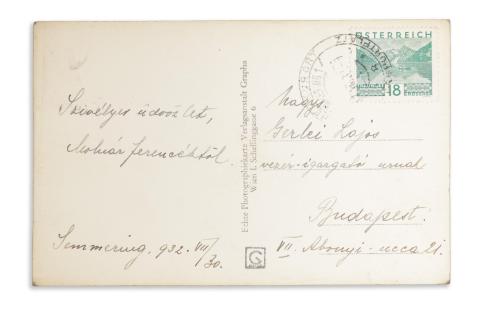 Szívélyes üdvözlet,
Molnár Ferencéktől.
Semmering. 932. VII/30.
Echte Photographiekarte Verlagsanstalt Grapha
Wien I. Schellinggasse 6
G
ÖSTERREICH
18
GROSCHEN
Nagys.
Gerlei Lajos
vezér-igazgató urnak
Budapest.
VII. Abonyi-ucca 21.